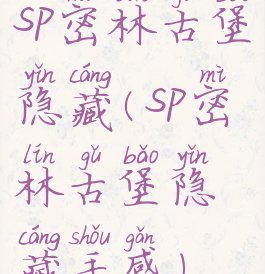 SP密林古堡
yǐn cáng mì
隐藏(SP密
lín gǔ bǎo yǐn
林古堡隐
cáng shǒu gǎn
藏手感)